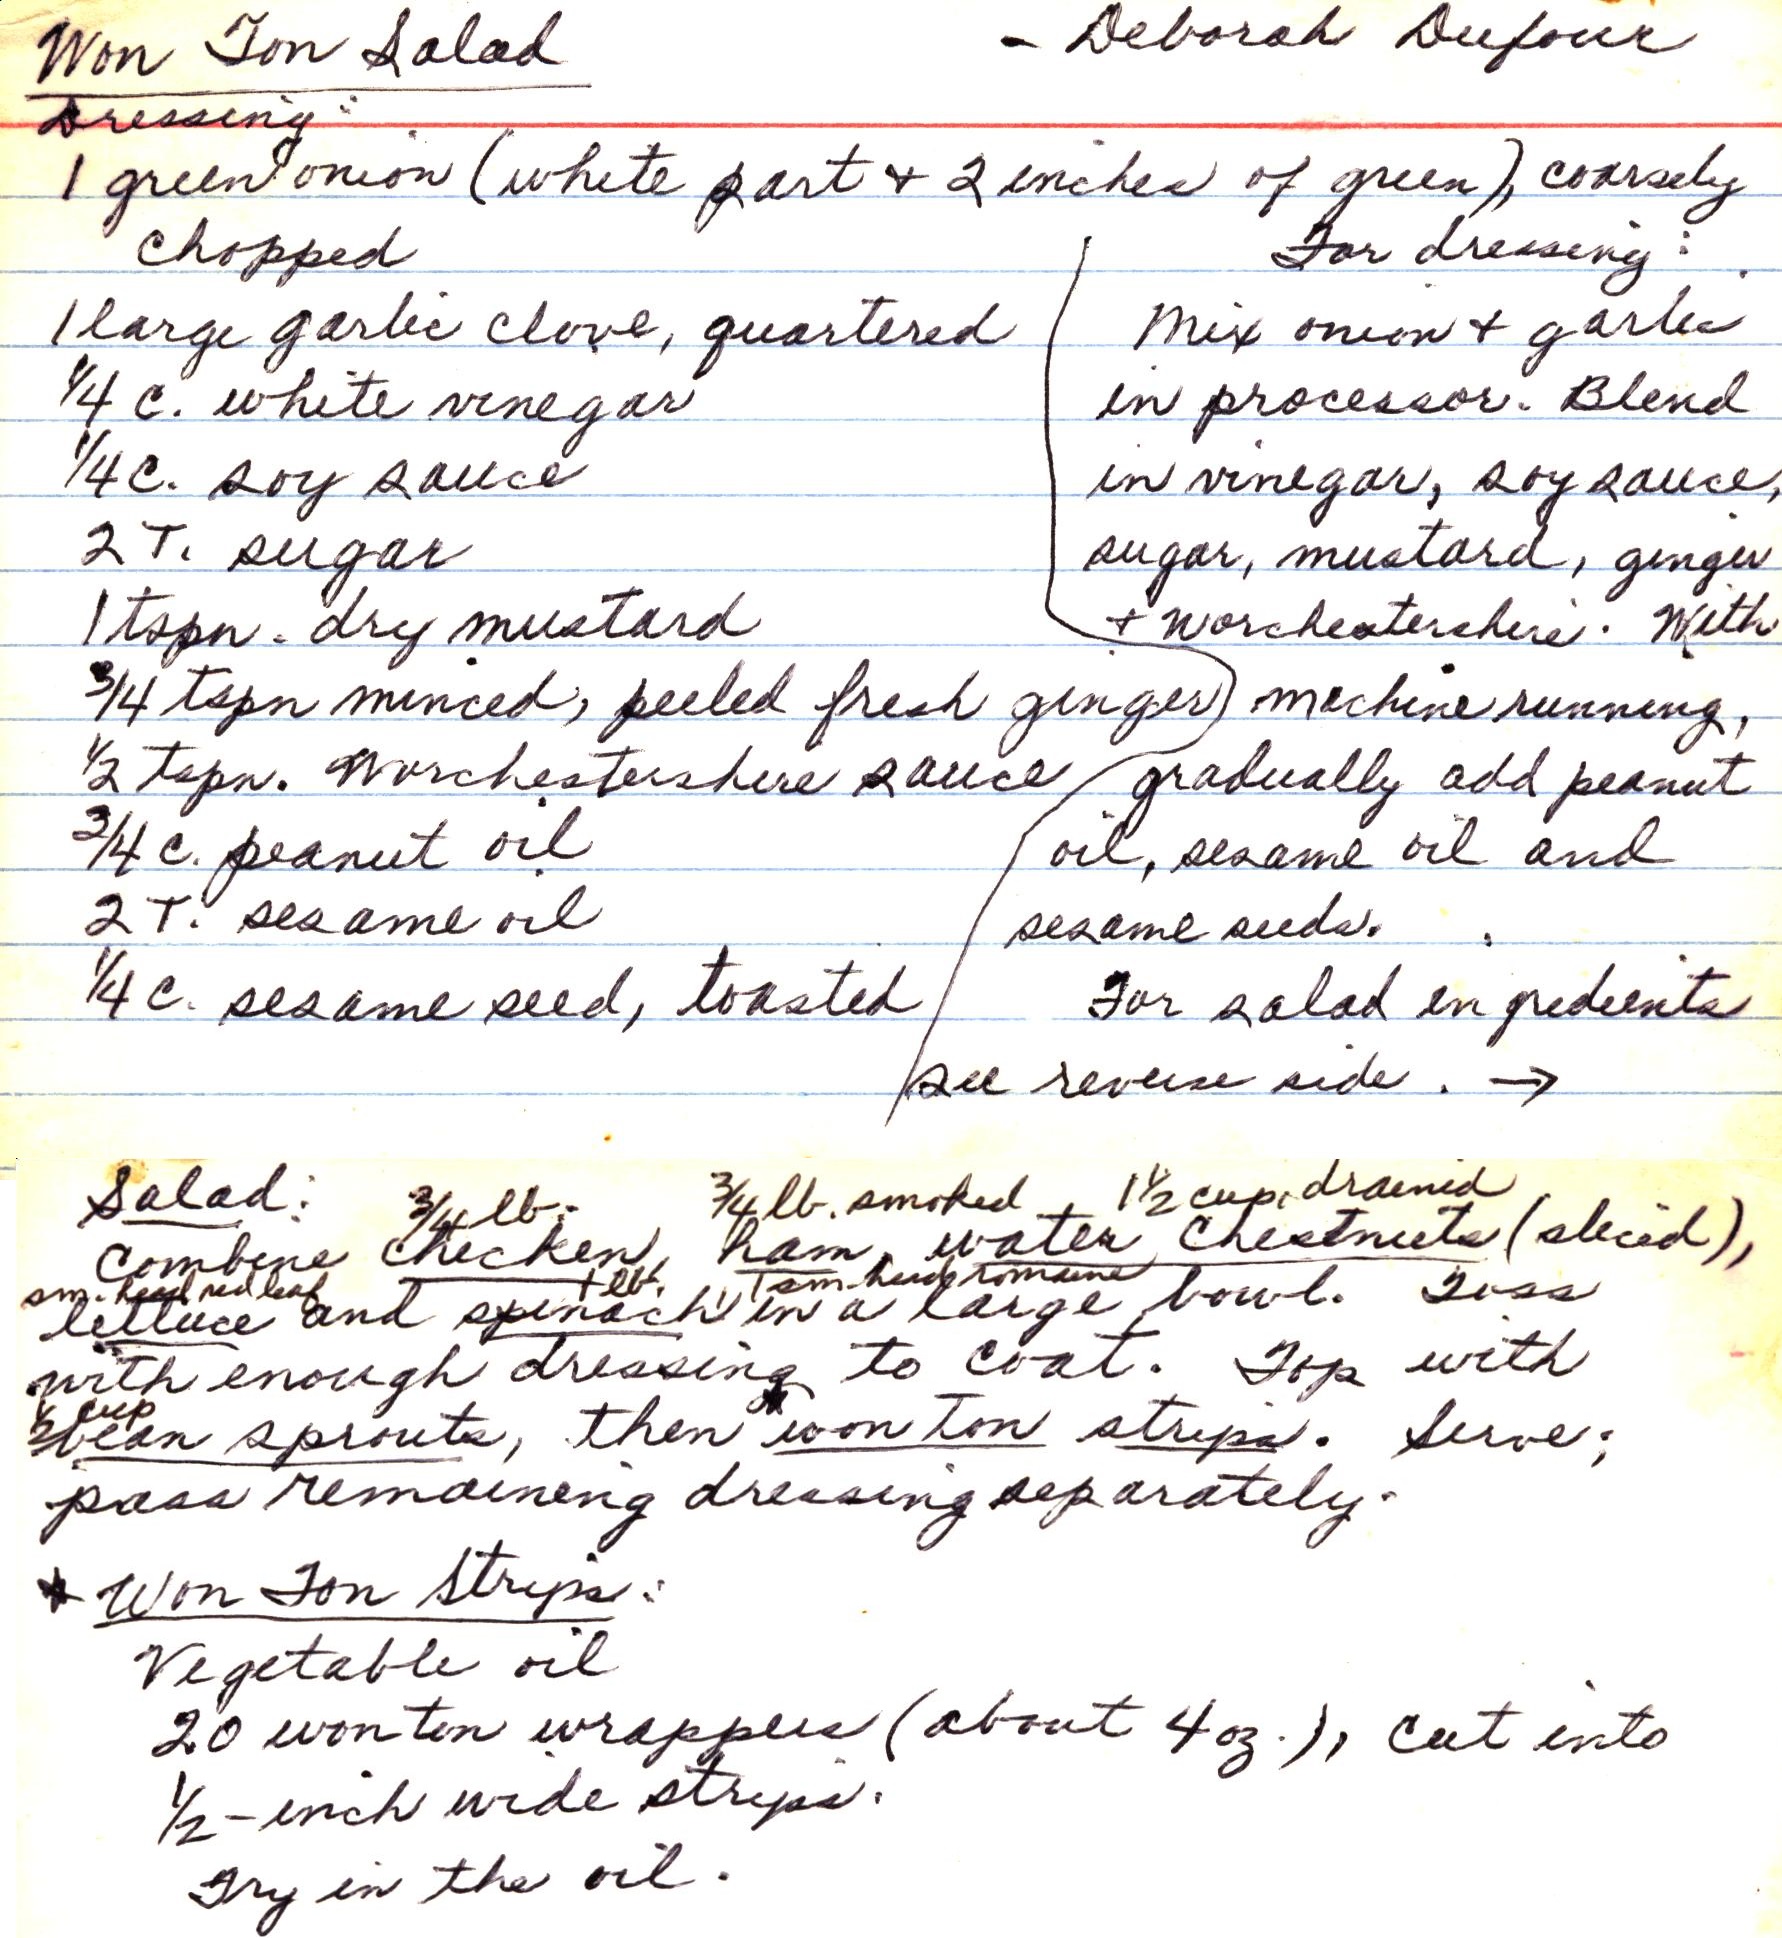 Won Ton Salad - Deborah Dufour
Dressing:
1 green onion (white part + 2 inches of green), coarsely
chopped
1 large garlic clove, quartered
1/4 c. white vinegar
1/4 c. soy sauce
2 T. sugar
1 tspn. dry mustard
3/4 tspn minced, peeled fresh ginger
1/2 tspn. Worchestershire sauce
3/4 c. peanut oil
2 T. sesame oil
1/4 c. sesame seed, toasted
For dressing:
Mix onion + garlic
in processor. Blend
in vinegar, soy sauce,
sugar, mustard, ginger
+ Worchestershire. With
machine running,
gradually add peanut
oil, sesame oil and
sesame seeds.
For salad ingredients
see reverse side. →
Salad: 3/4 lb. 3/4 lb. smoked 1 1/2 cup, drained
Combine chicken, ham, water chestnuts (sliced),
sm. head red leaf lb. 1 sm. head romaine
lettuce and spinach in a large bowl. Toss
with enough dressing to coat. Top with
1/2 cup
bean sprouts, then *won ton strips. Serve;
pass remaining dressing separately.
* Won Ton Strips:
Vegetable oil
20 won ton wrappers (about 4 oz.), cut into
1/2-inch wide strips.
Fry in the oil.